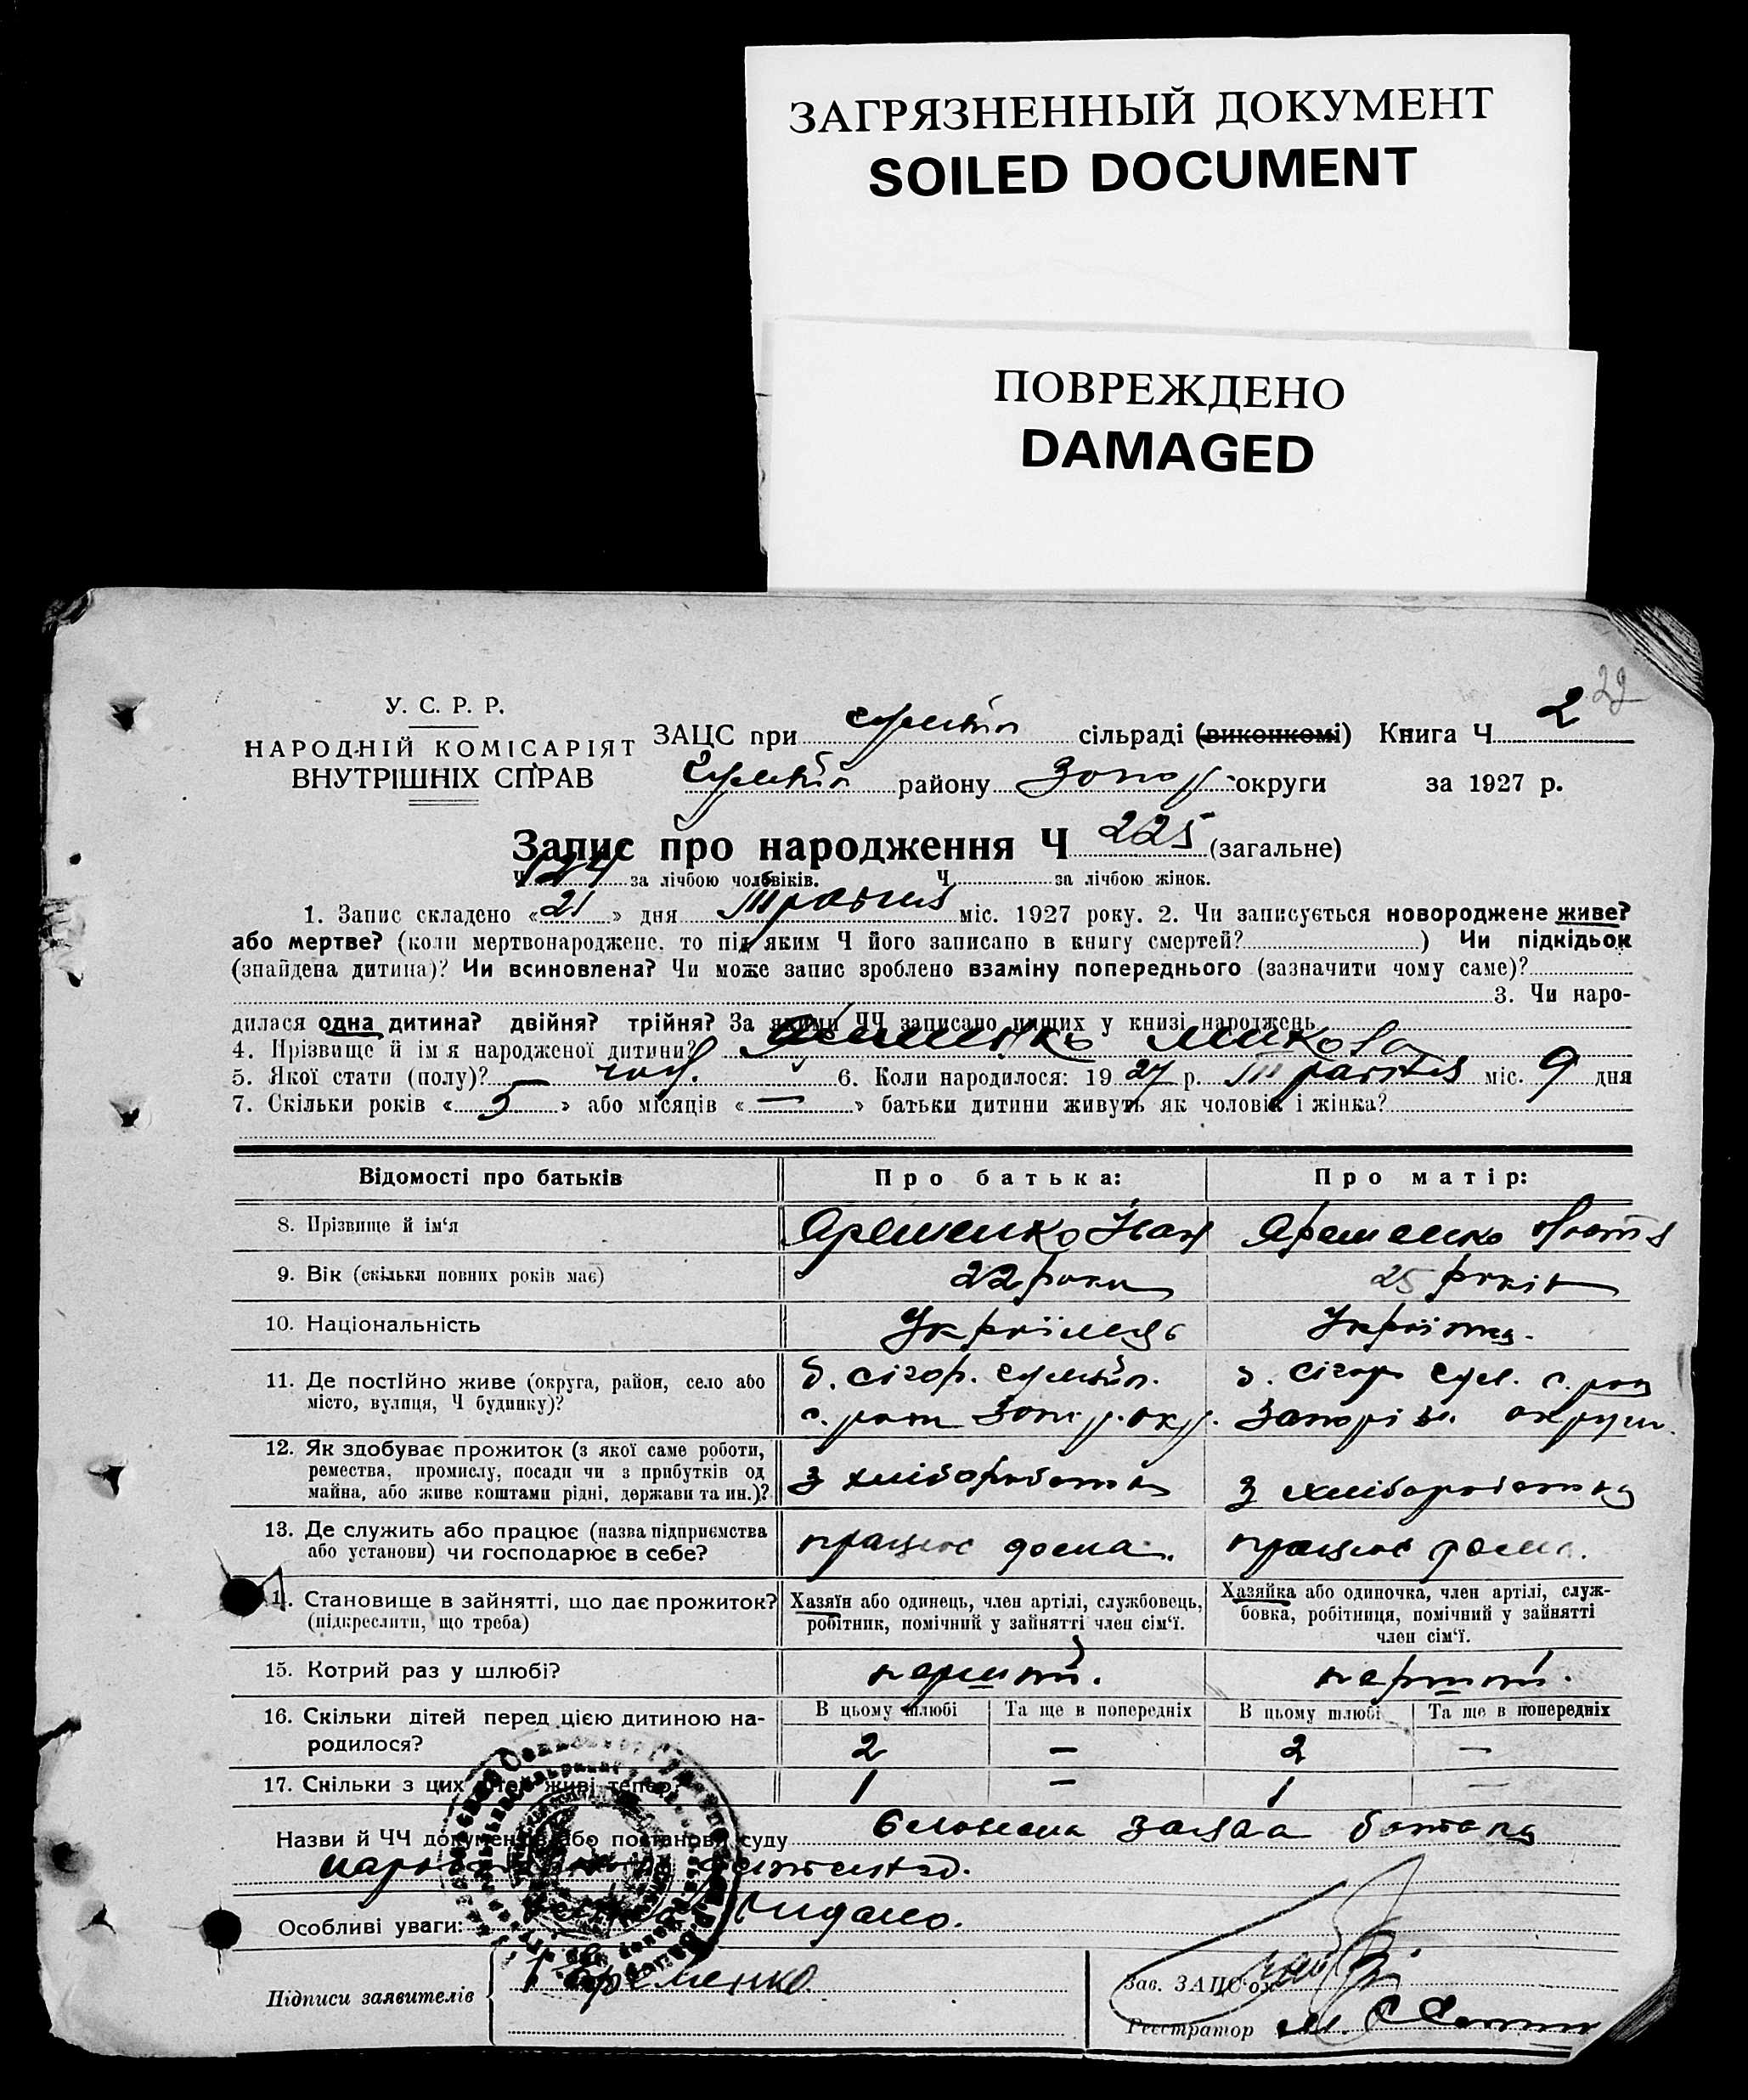 ЗАГРЯЗНЕННЫЙ ДОКУМЕНТ
SOILED DOCUMENT
ПОВРЕЖДЕНО
DAMAGED
22
У. С. Р. Р.
НАРОДНІЙ КОМІСАРІЯТ
ВНУТРІШНІХ СПРАВ
ЗАЦС при сільраді (виконкомі) Книга Ч 2
району Запор округи за 1927 р.
Запис про народження Ч 225 (загальне)
Ч 124 за лічбою чоловіків. Ч за лічбою жінок.
1. Запис складено «21» дня Травня міс. 1927 року. 2. Чи записується новороджене живе?
або мертве? (коли мертвонароджене, то під яким Ч його записано в книгу смертей? ) Чи підкідьок
(знайдена дитина)? Чи всиновлена? Чи може запис зроблено взаміну попереднього (зазначити чому саме)?
3. Чи наро-
дилася одна дитина? двійня? трійня? За якими ЧЧ записано инших у книзі народжень
4. Прізвище й ім'я народженої дитини? Яременко Микола
5. Якої стати (полу)? — чол. 6. Коли народилося: 1927 р. Травня міс. 9 дня
7. Скільки років «5» або місяців «—» батьки дитини живуть як чоловік і жінка?
Відомості про батьків Про батька: Про матір:
8. Прізвище й ім'я Яременко Іван Яременко
9. Вік (скільки повних років має) 22 роки 25 років
10. Національність Українець Українка.
11. Де постійно живе (округа, район, село або
місто, вулиця, Ч будинку)?
Запор. окр. Запоріз. округи.
12. Як здобуває прожиток (з якої саме роботи,
ремества, промислу, посади чи з прибутків од
майна, або живе коштами рідні, держави та ин.)?
з хліборобства з хліборобства
13. Де служить або працює (назва підприємства
або установи) чи господарює в себе?
працює дома. працює дома.
14. Становище в зайнятті, що дає прожиток?
(підкреслити, що треба)
Хазяїн або одинець, член артілі, службовець,
робітник, помічний у зайнятті член сім'ї.
Хазяйка або одиночка, член артілі, служ-
бовка, робітниця, помічний у зайнятті
член сім'ї.
15. Котрий раз у шлюбі? перший. перший.
16. Скільки дітей перед цією дитиною на-
родилося?
В цьому шлюбі Та ще в попередніх В цьому шлюбі Та ще в попередніх
2 — 2 —
17. Скільки з цих дітей живі тепер? 1 — 1 —
Назви й ЧЧ документів або постанови суду словесна заява батька
Особливі уваги: видано.
Підписи заявителів Яременко.
Зав. ЗАЦС'ом
Реєстратор